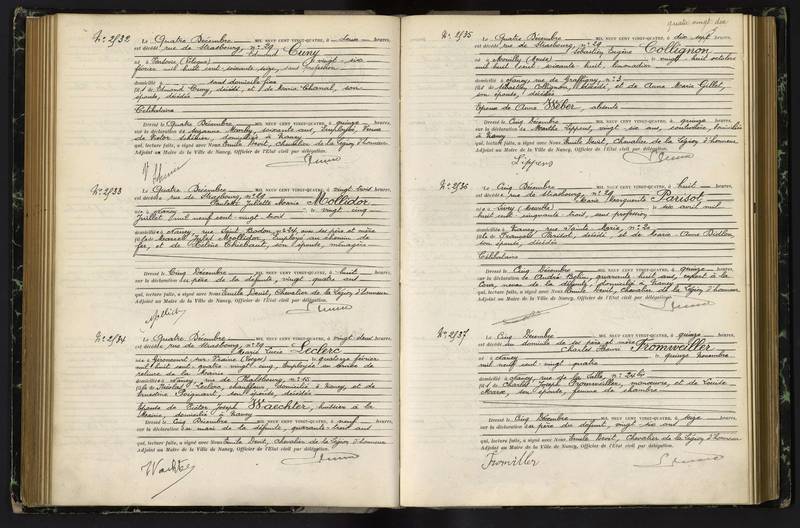 quatre vingt dix
N° 2132
Le Quatre Décembre MIL NEUF CENT VINGT-QUATRE, à heures,
est décédé, rue de Strasbourg, n° 29 Cuny
né à le vingt six
février mil huit cent soixante seize, sans profession
domicilié à sans domicile fixe
fils de Edmond Cuny, décédé, et de Maria Chanal, son
épouse, décédée
Célibataire
Dressé le Quatre Décembre MIL NEUF CENT VINGT-QUATRE, à quinze heures,
sur la déclaration de soixante ans, Employée, Veuve
de Victor domiciliée à Nancy
qui, lecture faite, a signé avec Nous Emile Chevalier de la Légion d'honneur
Adjoint au Maire de la Ville de Nancy, Officier de l'Etat civil par délégation.
N° 2133
Le Quatre Décembre MIL NEUF CENT VINGT-QUATRE, à vingt trois heures,
est décédée, rue de Strasbourg, n° 29
Juliette Marie Mollidor
née à Nancy le vingt cinq
Juillet mil neuf cent vingt trois
domiciliée à Nancy, rue Saint Bodon, n° 24, avec ses père et mère
fille de Marcel Jules Mollidor, Employé au chemin de
fer, et de Thiébaut, son épouse, ménagère
Dressé le Cinq Décembre MIL NEUF CENT VINGT-QUATRE, à huit heures,
sur la déclaration du père de la défunte, vingt quatre ans
qui, lecture faite, a signé avec Nous Emile Chevalier de la Légion d'honneur
Adjoint au Maire de la Ville de Nancy, Officier de l'Etat civil par délégation.
N° 2134
Le Quatre Décembre MIL NEUF CENT VINGT-QUATRE, à vingt deux heures,
est décédée, rue de Strasbourg, n° 29
Marie Lucie Leclerc
née à (Vosges) le quatorze février
mil huit cent quatre vingt cinq, Employée au
de la Mairie
domiciliée à Nancy, rue de Phalsbourg, n° 15
fille de Leclerc, chauffeur, domicilié à Nancy, et de
Ernestine Poignant, son épouse, décédée
Epouse de Victor Joseph Waechter, huissier à la
Mairie, domicilié à Nancy
Dressé le Cinq Décembre MIL NEUF CENT VINGT-QUATRE, à neuf heures,
sur la déclaration du mari de la défunte, quarante huit ans
qui, lecture faite, a signé avec Nous Emile Chevalier de la Légion d'honneur
Adjoint au Maire de la Ville de Nancy, Officier de l'Etat civil par délégation.
N° 2135
Le Quatre Décembre MIL NEUF CENT VINGT-QUATRE, à dix sept heures,
est décédé, rue de Strasbourg, n° 29
Sébastien Eugène Collignon
né à (Meuse) le vingt huit octobre
mil huit cent soixante huit, limonadier
domicilié à Nancy, rue de Graffigny, n° 3
fils de Collignon, décédé, et de Anne Marie Gillet,
son épouse, décédée
Epoux de Anne Wéber, absente
Dressé le Cinq Décembre MIL NEUF CENT VINGT-QUATRE, à quinze heures,
sur la déclaration de Marthe Lippens, vingt six ans, couturière, domiciliée
à Nancy
qui, lecture faite, a signé avec Nous Emile Chevalier de la Légion d'honneur
Adjoint au Maire de la Ville de Nancy, Officier de l'Etat civil par délégation.
Lippens
N° 2136
Le Cinq Décembre MIL NEUF CENT VINGT-QUATRE, à huit heures,
est décédée, rue de Strasbourg, n° 29
Marie Marguerite Parisot
née à le six avril mil
huit cent cinquante trois, sans profession
domiciliée à Nancy, rue Sainte Marie, n° 20
fille de François Parisot, décédé, et de Marie Anne
son épouse, décédée
Célibataire
Dressé le Cinq Décembre MIL NEUF CENT VINGT-QUATRE, à quinze heures,
sur la déclaration de André quarante huit ans, expert à la
Cour, neveu de la défunte, domicilié à Nancy
qui, lecture faite, a signé avec Nous Emile Chevalier de la Légion d'honneur
Adjoint au Maire de la Ville de Nancy, Officier de l'Etat civil par délégation.
N° 2137
Le Cinq Décembre MIL NEUF CENT VINGT-QUATRE, à quinze heures,
est décédé, au domicile de ses père et mère
Charles Henri Fromweiller
né à Nancy le quinze Novembre
mil neuf cent vingt quatre
domicilié à Nancy, rue de la n°
fils de Charles Joseph Fromweiller, manœuvre, et de Louise
Marx, son épouse, femme de chambre
Dressé le Cinq Décembre MIL NEUF CENT VINGT-QUATRE, à seize heures,
sur la déclaration du père du défunt, vingt six ans
qui, lecture faite, a signé avec Nous Emile Chevalier de la Légion d'honneur
Adjoint au Maire de la Ville de Nancy, Officier de l'Etat civil par délégation.
Fromviller